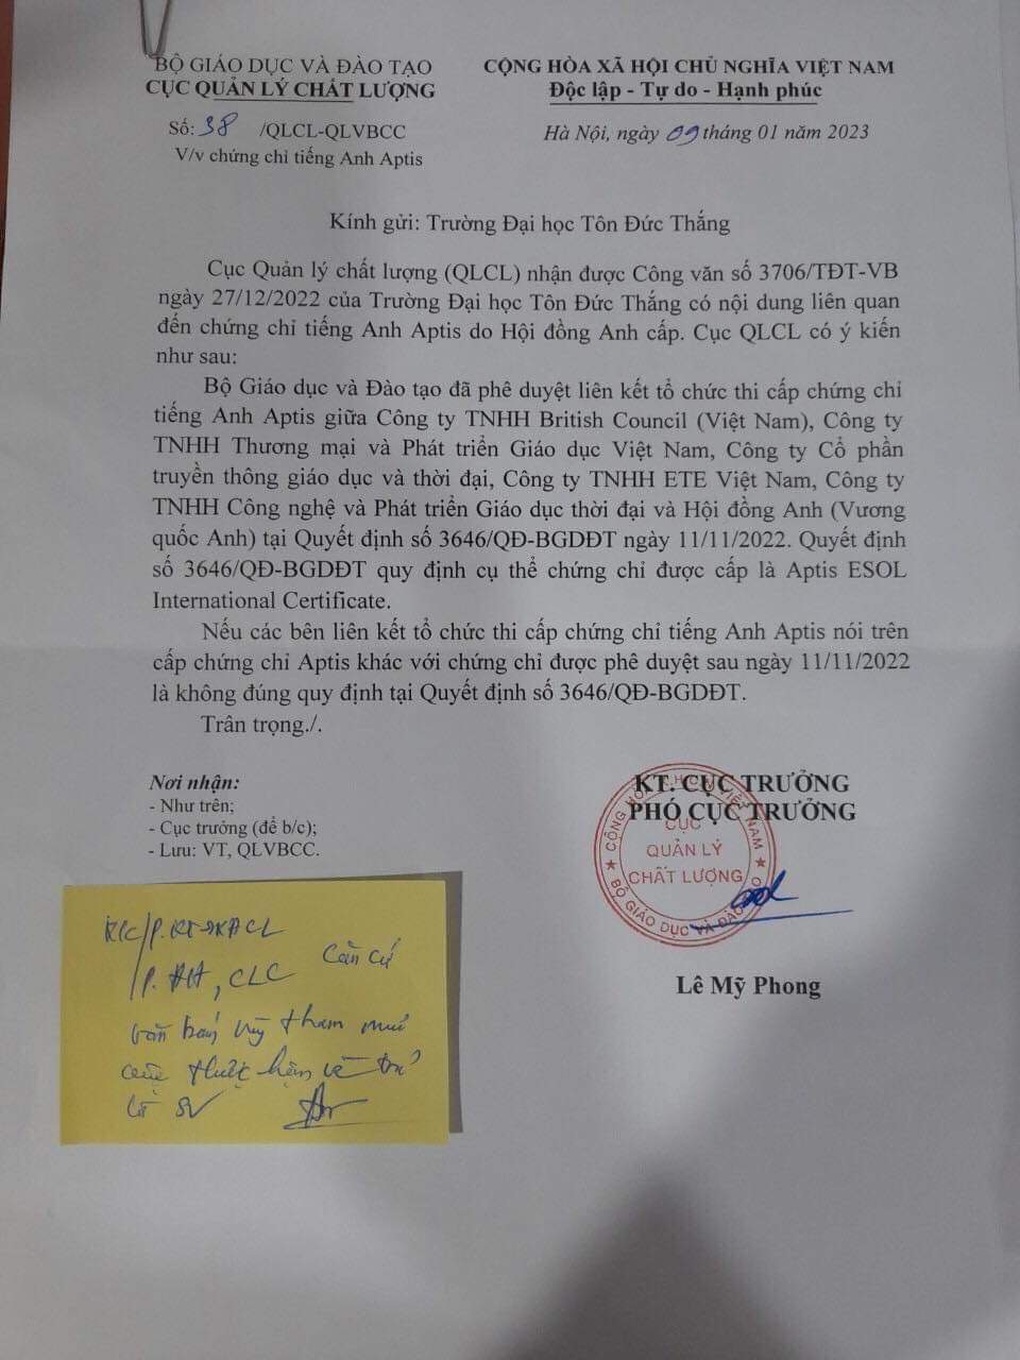 BỘ GIÁO DỤC VÀ ĐÀO TẠO
CỤC QUẢN LÝ CHẤT LƯỢNG
CỘNG HÒA XÃ HỘI CHỦ NGHĨA VIỆT NAM
Độc lập - Tự do - Hạnh phúc
Số: 38 /QLCL-QLVBCC
V/v chứng chỉ tiếng Anh Aptis
Hà Nội, ngày 09 tháng 01 năm 2023
Kính gửi: Trường Đại học Tôn Đức Thắng
Cục Quản lý chất lượng (QLCL) nhận được Công văn số 3706/TĐT-VB
ngày 27/12/2022 của Trường Đại học Tôn Đức Thắng có nội dung liên quan
đến chứng chỉ tiếng Anh Aptis do Hội đồng Anh cấp. Cục QLCL có ý kiến
như sau:
Bộ Giáo dục và Đào tạo đã phê duyệt liên kết tổ chức thi cấp chứng chỉ
tiếng Anh Aptis giữa Công ty TNHH British Council (Việt Nam), Công ty
TNHH Thương mại và Phát triển Giáo dục Việt Nam, Công ty Cổ phần
truyền thông giáo dục và thời đại, Công ty TNHH ETE Việt Nam, Công ty
TNHH Công nghệ và Phát triển Giáo dục thời đại và Hội đồng Anh (Vương
quốc Anh) tại Quyết định số 3646/QĐ-BGDĐT ngày 11/11/2022. Quyết định
số 3646/QĐ-BGDĐT quy định cụ thể chứng chỉ được cấp là Aptis ESOL
International Certificate.
Nếu các bên liên kết tổ chức thi cấp chứng chỉ tiếng Anh Aptis nói trên
cấp chứng chỉ Aptis khác với chứng chỉ được phê duyệt sau ngày 11/11/2022
là không đúng quy định tại Quyết định số 3646/QĐ-BGDĐT.
Trân trọng./.
Nơi nhận:
- Như trên;
- Cục trưởng (để b/c);
- Lưu: VT, QLVBCC.
KT. CỤC TRƯỞNG
PHÓ CỤC TRƯỞNG
CỤC
QUẢN LÝ
CHẤT LƯỢNG
BỘ GIÁO DỤC VÀ ĐÀO TẠO
Lê Mỹ Phong
/P. ĐH, CLC Căn cứ
văn bản này tham mưu
SV